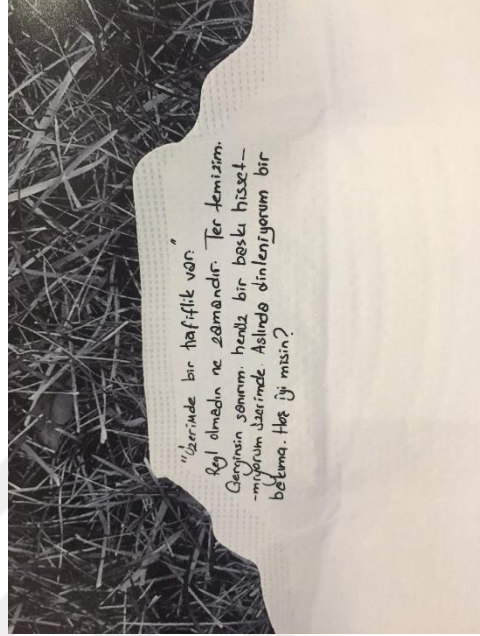 "Üzerimde bir hafiflik var."
Regl olmadın ne zamandır. Ter temizim.
Gerginsin sanırım. henüz bir baskı hisset-
-miyorum üzerimde. Aslında dinleniyorum bir
bakıma. Hoş iyi misin?